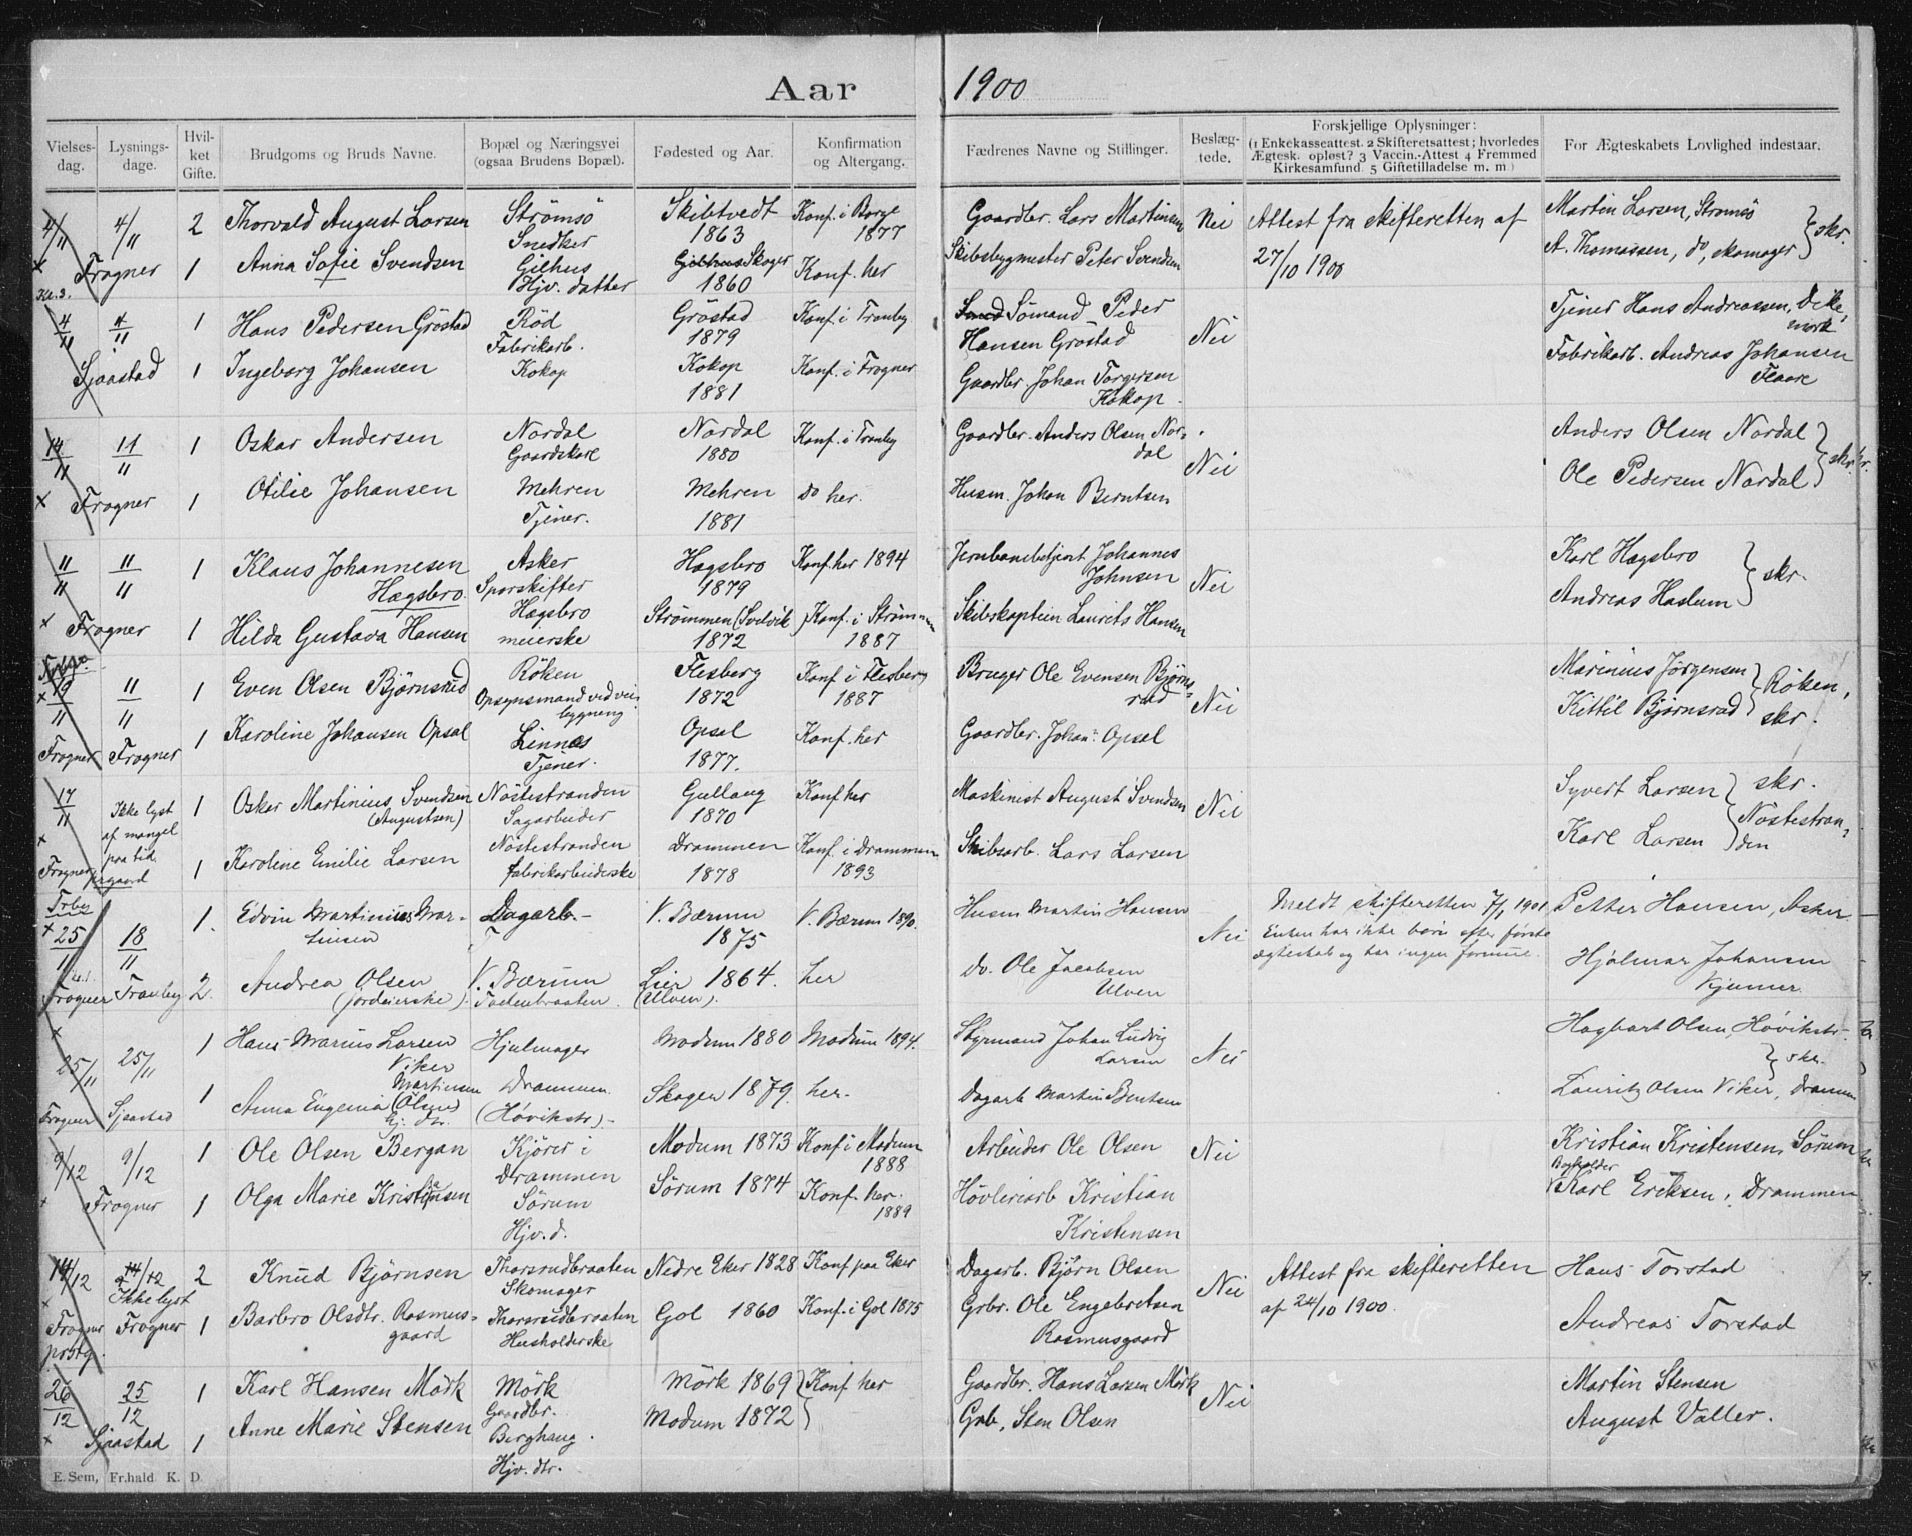 Aar 1900
Vielses-dag. Lysnings-dage. Hvil-ket Gifte. Brudgoms og Bruds Navne. Bopæl og Næringsvei (ogsaa Brudens Bopæl). Fødested og Aar. Konfirmation og Altergang. Fædrenes Navne og Stillinger. Beslæg-tede. Forskjellige Oplysninger: (1 Enkekasseattest. 2 Skifteretsattest; hvorledes Ægtesk. opløst? 3 Vaccin.-Attest 4 Fremmed Kirkesamfund 5 Giftetilladelse m. m.) For Ægteskabets Lovlighed indestaar.
4/11 4/11 2 Thorvald August Larsen Strømsö Snedker Skibtvedt 1863 Konf. i Borge 1877 Gaardbr. Lars Martinsen Nei Attest fra skifteretten af 27/10 1900 Martin Larsen, Strømsö
Frogner 1 Anna Sofie Svendsen Gilhus Hjv. datter Gjilhus Skoger 1860 Konf. her Skibsbygmester Peter Svendsen A. Thomassen, do, skomager skr.
4/11 4/11 1 Hans Pedersen Gröstad Röd Fabrikarb. Gröstad 1879 Konf. i Tranby Sömand Peder Hansen Gröstad Nei Tjener Hans Andreassen, Dikemark
Sjaastad 1 Ingeborg Johansen Kokop Kokop 1881 Konf. i Frogner Gaardbr. Johan Torgersen Kokop. Fabrikarb. Andreas Johansen Flaare
14/11 11/11 1 Oskar Andersen Nordal Gaardskarl Nordal 1880 Konf. i Tranby Gaardbr. Anders Olsen Nordal Nei Anders Olsen Nordal
Frogner 1 Otilie Johansen Mehren Tjener. Mehren 1881 do her. Husm. Johan Berntsen Ole Pedersen Nordal skr.
11/11 11/11 1 Klaus Johannesen Hægsbro. Asker Sporskifter Hagsbro 1879 Konf. her 1894 Jernbanebetjent Johannes Johnsen Nei Karl Hægsbro
Frogner 1 Hilda Gustava Hansen Hægsbro meierske Strømmen (Svelvik) 1872 Konf. i Strømmen 1887 Skibskaptein Laurits Hansen Andreas Haslum skr.
19/11 11/11 1 Even Olsen Bjørnsrud Röken Opsynsmand ved veibygning Flesberg 1872 Konf. i Flesberg 1887 Bruger Ole Evensen Bjørnsrud Nei Marinius Jørgensen Röken,
Frogner Frogner 1 Karoline Johansen Opsal Linnes Tjener. Opsal 1877. Konf. her Gaardbr. Johan Opsal Kittil Bjørnsrud skr.
17/11 Ikke lyst af mangel paa tid. 1 Oskar Martinius Svendsen (Augustsen) Nöstestranden Sagarbeider Gullaug 1870 Konf her Maskinist August Svendsen Nei Syvert Larsen skr.
Frogner prgaard 1 Karoline Emilie Larsen Nöstestranden fabrikarbeiderske Drammen 1878 Konf. i Drammen 1893 Skibsarb. Lars Larsen Karl Larsen Nöstestranden
25/11 18/11 1. Edvin Martinius Martinsen Dagarb. V. Bærum 1875 V. Bærum 1890. Husm Martin Hansen Nei Meldt skifteretten 7/1 1901 Enken har ikke børn efter første ægteskab og har ingen formue. Petter Hansen, Asker
Frogner Tranby 2. Andrea Olsen (jordeierske) V. Bærum Lier 1864. (Ulven). her do. Ole Jacobsen Ulven Hjalmar Johansen
25/11 25/11 1 Hans Marius Larsen Viker Hjulmager Modum 1880 Modum 1894. Styrmand Johan Ludvig Larsen Nei Hagbart Olsen, Høvikstr.
Frogner Sjaastad 1 Anna Eugenia Martinsen (Olsen) Drammen (Høvikstr.) Skoger 1879. her. Dagarb Martin Berntsen skr. Lauritz Olsen Viker, Drammen
9/12 9/12 1 Ole Olsen Bergan Kjörer i Drammen Modum 1873 Konf i Modum 1888 Arbeider Ole Olsen Nei Kristian Kristensen, Sörum
Frogner 1 Olga Marie Kristensen Sörum Hjv. d. Sörum 1874 Konf. her. 1889 Hövleriarb Kristian Kristensen Bogholder Karl Eriksen, Drammen
14/12 Ikke lyst 2 Knud Björnsen Thorsrudbraaten Skomager Nedre Eker 1828 Konf paa Eker Dagarb. Björn Olsen Nei Attest fra skifteretten af 24/10 1900. Hans Torstad
Frogner prstg. Frogner 1 Barbro Olsdtr. Rasmusgaard Thorsrudbraaten Husholderske Gol 1860 Konf. i Gol 1875 Grbr. Ole Engebretsen Rasmusgaard Andreas Torstad
26/12 25/12 1 Karl Hansen Mörk Mörk Gaardbr. Mörk 1869 Konf her Gaardbr. Hans Larsen Mörk Nei Martin Stensen
Sjaastad 1 Anne Marie Stensen Berghaug. Hjv. dtr. Modum 1872 Grb. Sten Olsen August Valler.
E. Sem, Fr.hald K. D.